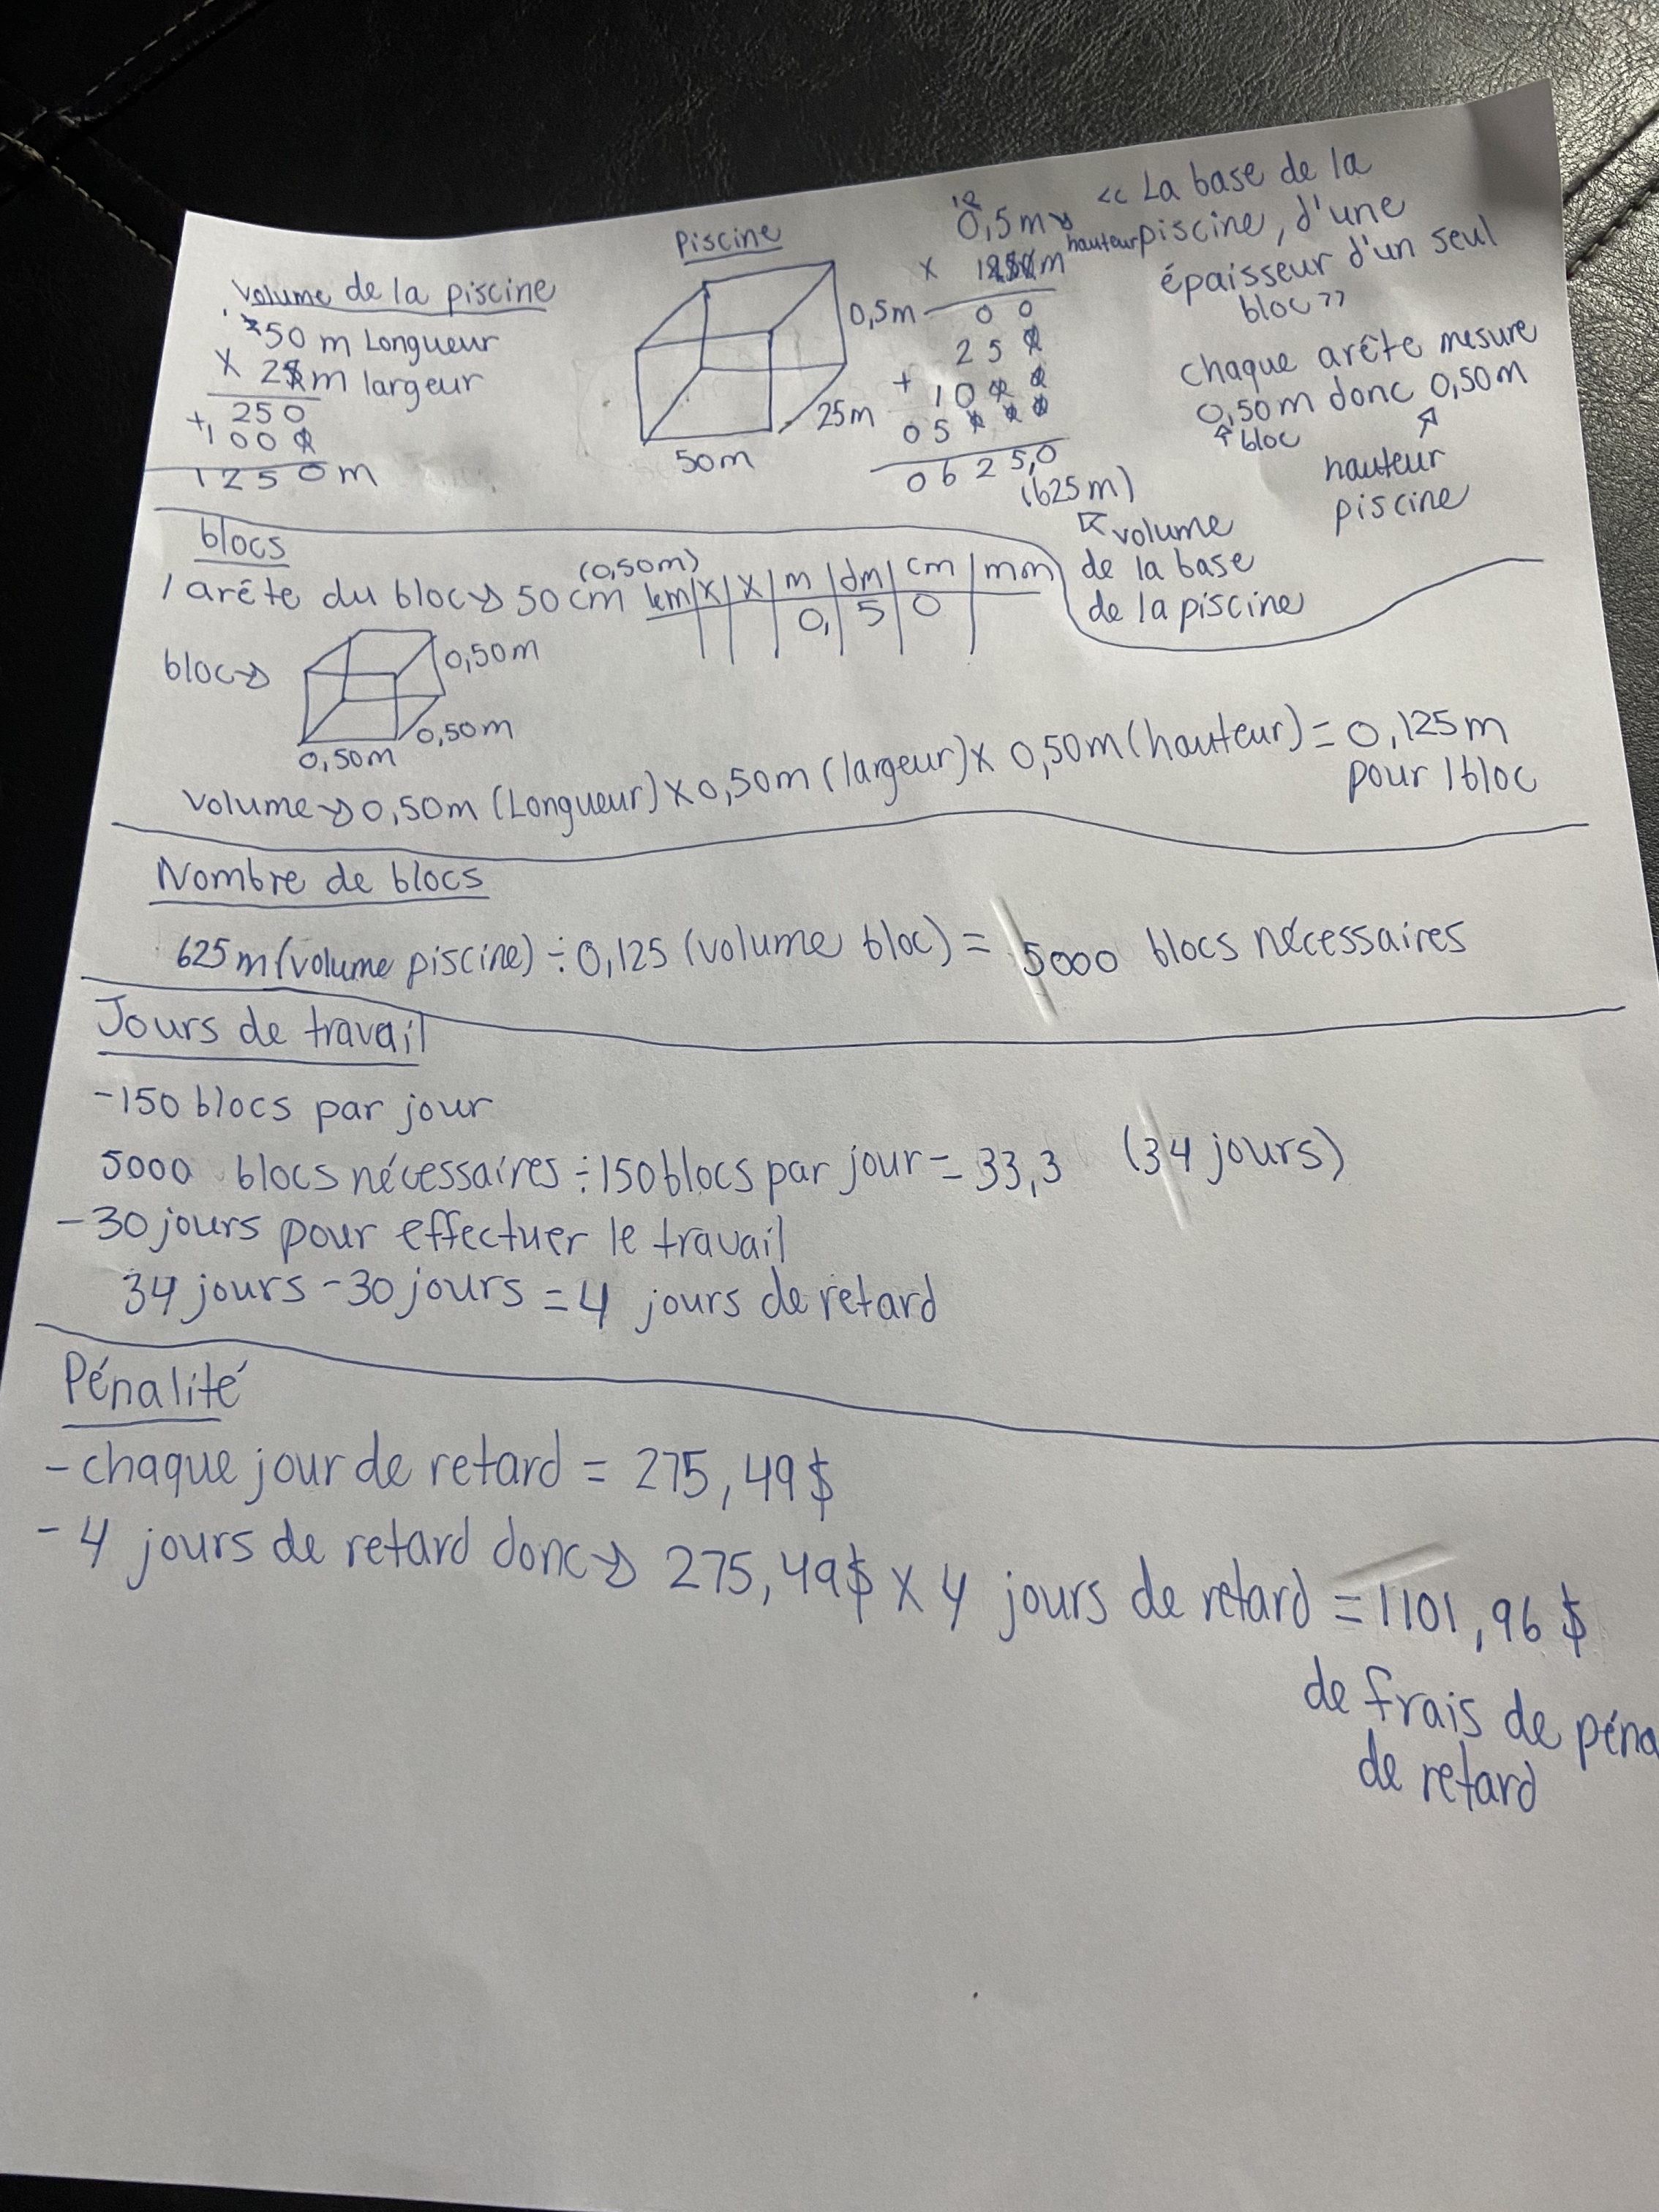 Volume de la piscine
50 m Longueur
x 25m largeur
250
+1000
1250m
Piscine
0,5m
25m
50m
0,5m → hauteur
x 1250m
00
250
+ 1000
05000
0625,0
(625m)
↖ volume
de la base
de la piscine
<< La base de la
piscine, d'une
épaisseur d'un seul
bloc >>
chaque arête mesure
0,50m donc 0,50m
↑ bloc
↗
hauteur
piscine
blocs
1 arête du bloc → 50 cm (0,50m)
km | x | x | m | dm | cm | mm
0, | 5 | 0
bloc →
0,50m
0,50m
0,50m
Volume → 0,50m (Longueur) x 0,50m (largeur) x 0,50m (hauteur) = 0,125m
pour 1 bloc
Nombre de blocs
625m (volume piscine) ÷ 0,125 (volume bloc) = 5000 blocs nécessaires
Jours de travail
-150 blocs par jour
5000 blocs nécessaires ÷ 150 blocs par jour = 33,3 (34 jours)
- 30 jours pour effectuer le travail
34 jours - 30 jours = 4 jours de retard
Pénalité
- chaque jour de retard = 275,49$
- 4 jours de retard donc → 275,49$ x 4 jours de retard = 1101,96 $
de frais de péna
de retard